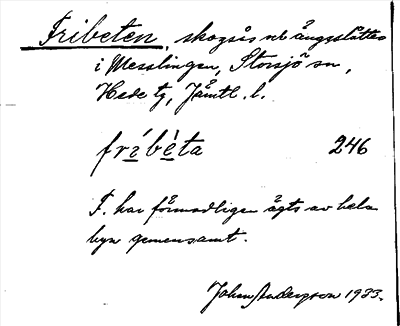 Fribeten, skogsås o. ängsslåtter
i Messlingen, Storsjö sn,
Hede tg, Jämtl. l.
frìbèta 246
F. har förmodligen ägts av hela
byn gemensamt.
Johan Andersson 1933.